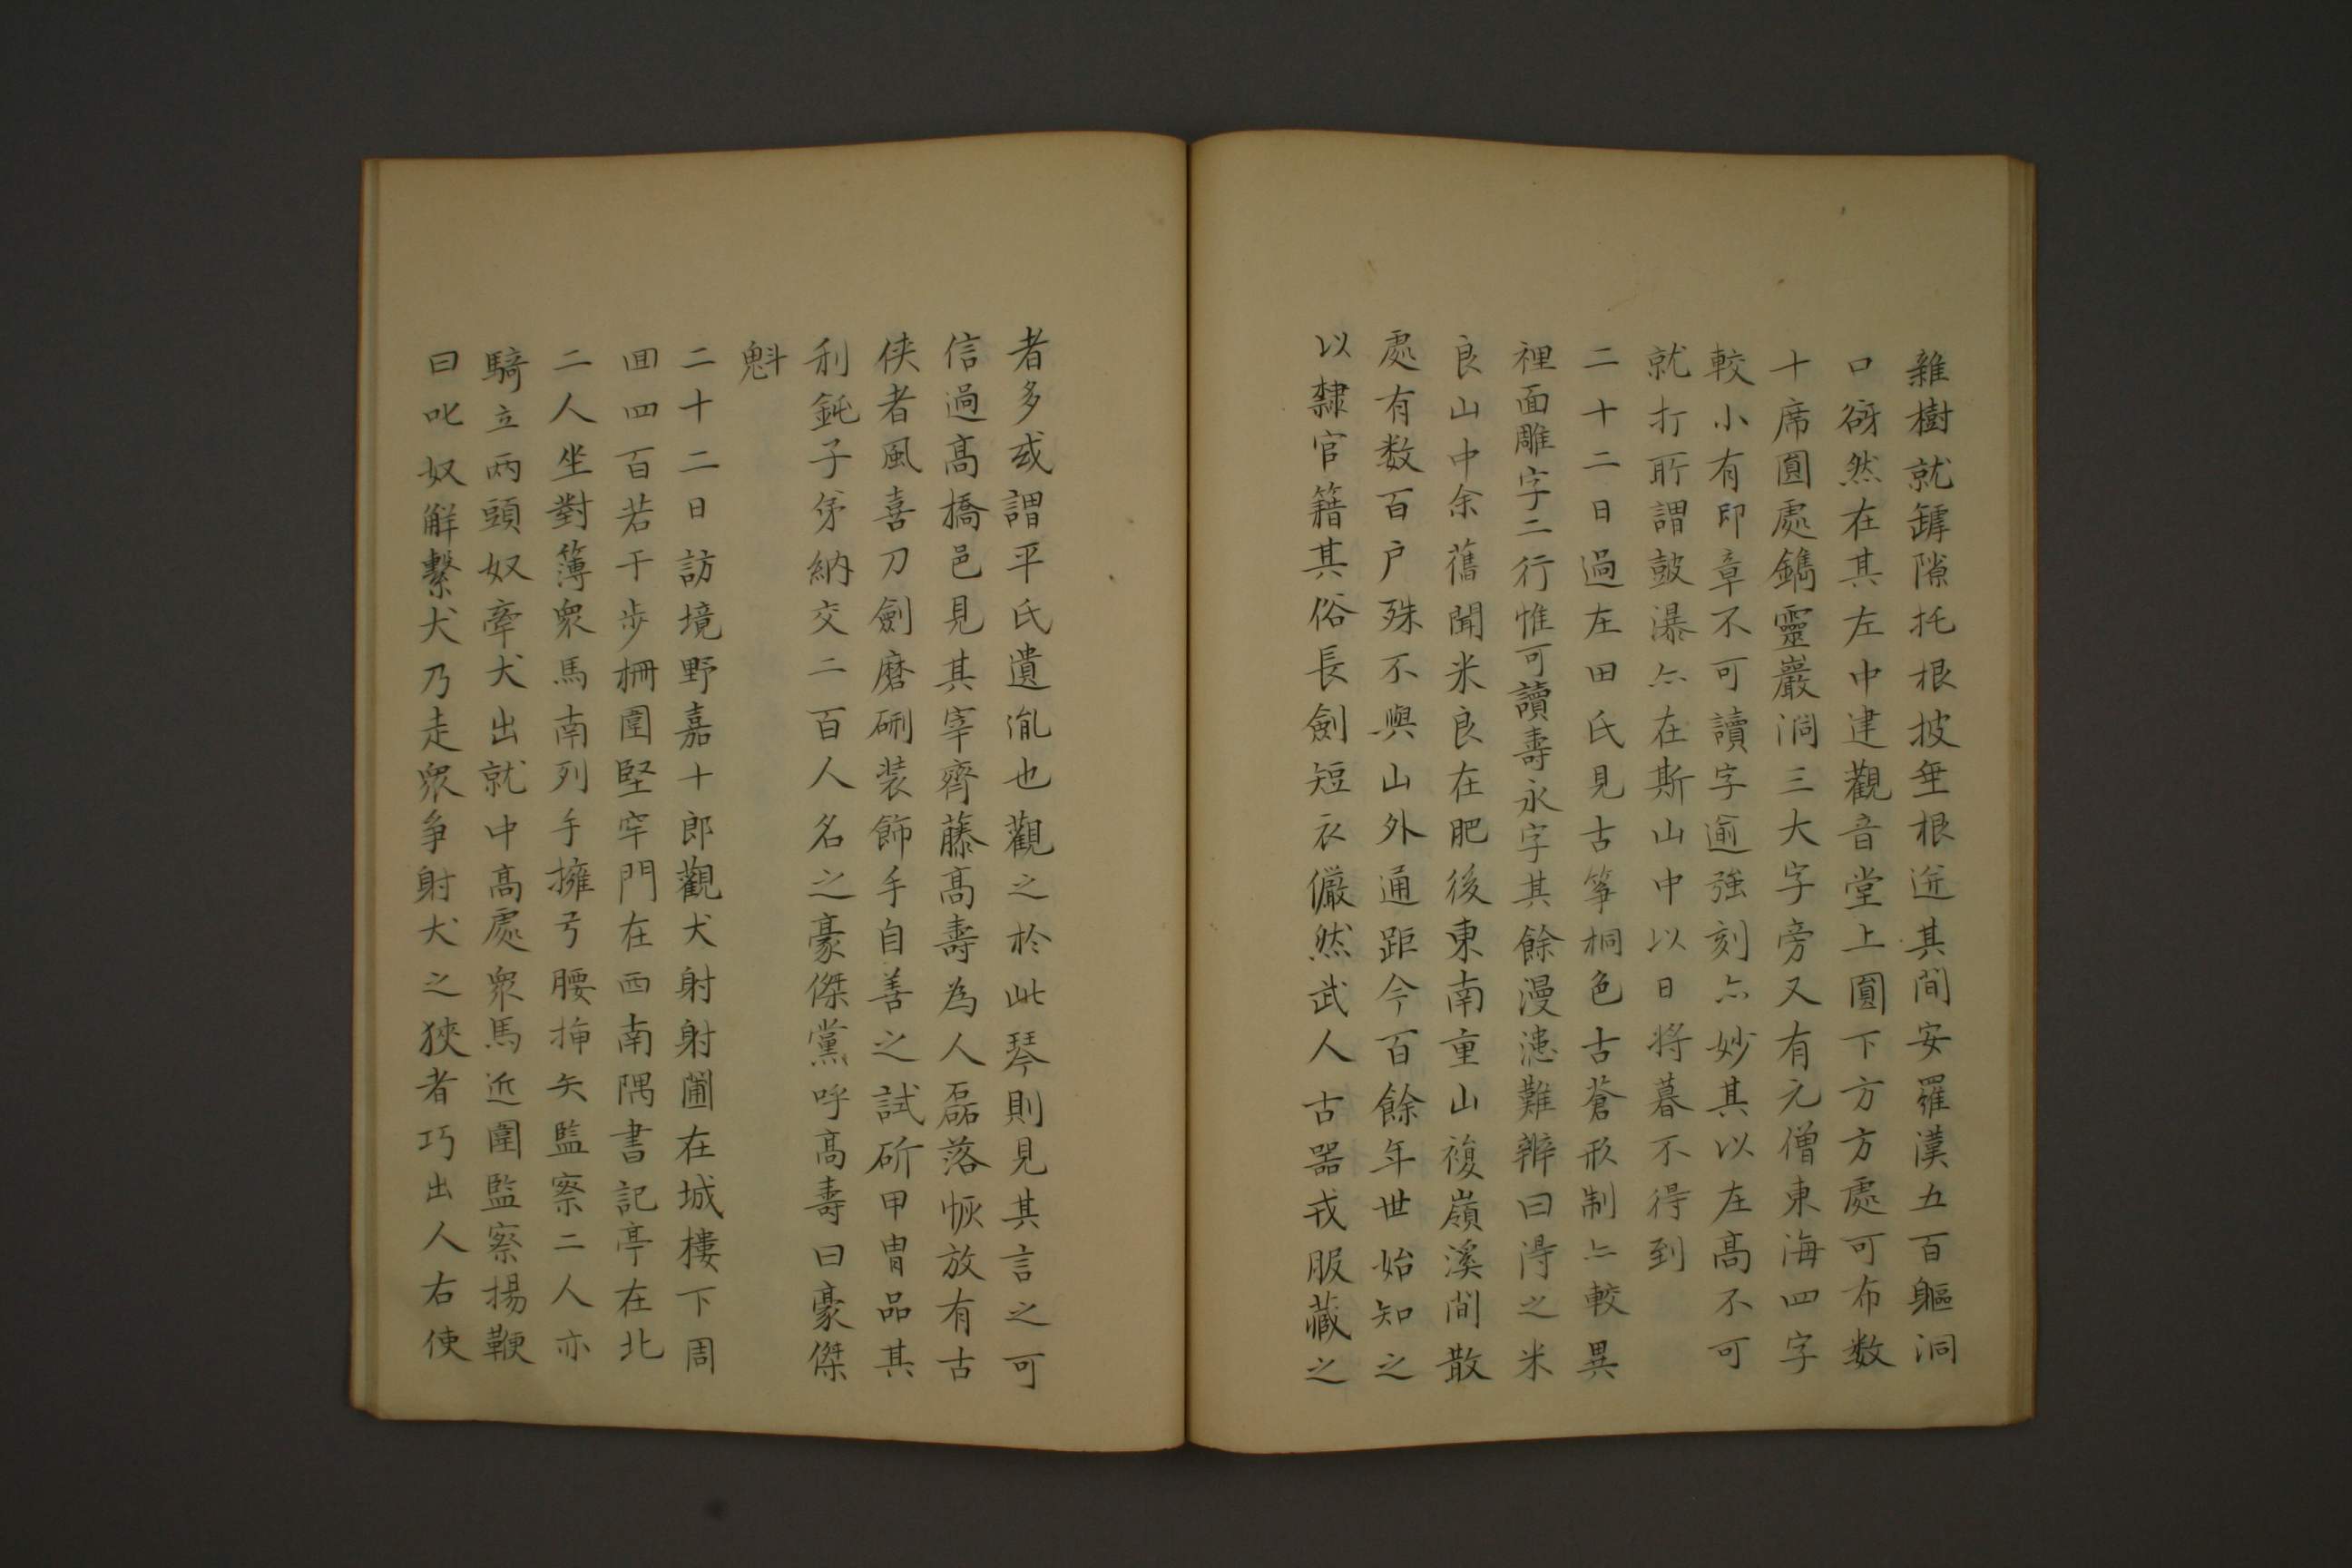 雜樹就罅隙托根披垂根迸其間安羅漢五百軀洞
口谺然在其左中建觀音堂上圓下方方處可布数
十席圓處鐫靈巖洞三大字旁又有元僧東海四字
較小有印章不可讀字逾強刻亦妙其以左高不可
就打所謂鼓瀑亦在斯山中以日将暮不得到
二十二日過左田氏見古筝桐色古蒼形制亦較異
裡面雕字二行惟可讀壽永字其餘漫漶難辨曰淂之米
良山中余舊聞米良在肥後東南重山複嶺溪間散
處有数百户殊不與山外通距今百餘年世始知之
以隸官籍其俗長劍短衣儼然武人古器戎服藏之
者多或謂平氏遺胤也觀之於此琴則見其言之可
信過髙橋邑見其宰齊藤髙壽為人磊落恢放有古
俠者風喜刀劍磨硎装飾手自善之試斫甲胄品其
利鈍子弟納交二百人名之豪傑黨呼髙壽曰豪傑
魁
二十二日訪境野嘉十郎觀犬射射圃在城樓下周
囬四百若干步柵圍堅牢門在西南隅書記亭在北
二人坐對簿衆馬南列手擁弓腰揷矢監察二人亦
騎立兩頭奴牽犬出就中髙處衆馬近圍監察揚鞭
曰叱奴解繫犬乃走衆争射犬之狹者巧出人右使